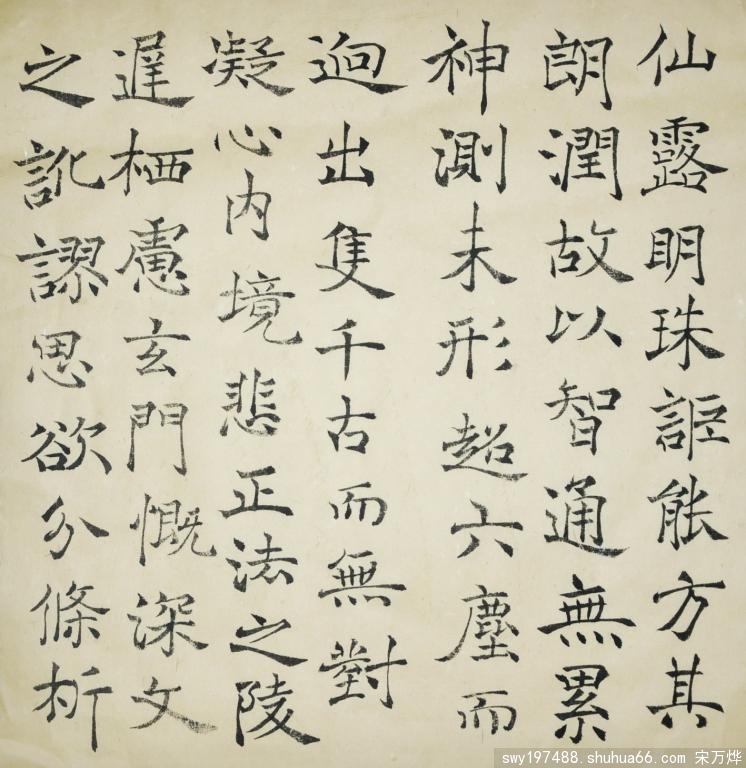 仙露明珠詎能方其
朗潤故以智通無累
神測未形超六塵而
迥出隻千古而無對
凝心內境悲正法之陵
遲栖慮玄門慨深文
之訛謬思欲分條析
swy197488.shuhua66.com 宋万烨